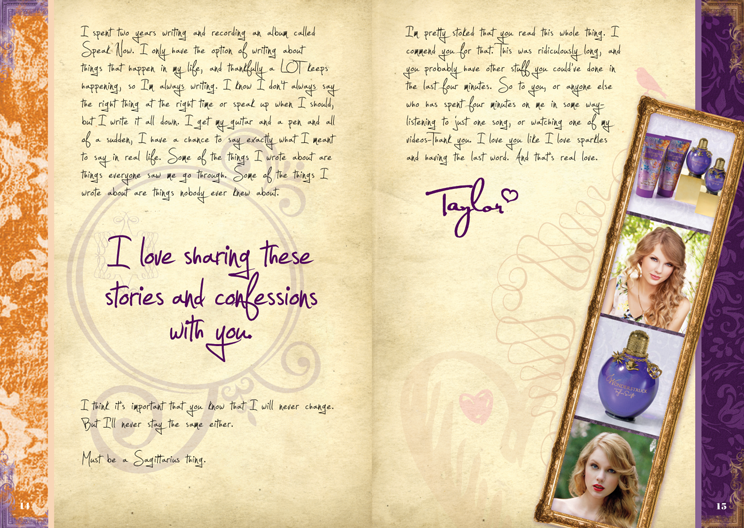 I spent two years writing and recording an album called
Speak Now. I only have the option of writing about
things that happen in my life, and thankfully a LOT keeps
happening, so I'm always writing. I know I don't always say
the right thing at the right time or speak up when I should,
but I write it all down. I get my guitar and a pen and all
of a sudden, I have a chance to say exactly what I meant
to say in real life. Some of the things I wrote about are
things everyone saw me go through. Some of the things I
wrote about are things nobody ever knew about.
I love sharing these
stories and confessions
with you.
I think it's important that you know that I will never change.
But I'll never stay the same either.
Must be a Sagittarius thing.
14
I'm pretty stoked that you read this whole thing. I
commend you for that. This was ridiculously long, and
you probably have other stuff you could've done in
the last four minutes. So to you, or anyone else
who has spent four minutes on me in some way-
listening to just one song, or watching one of my
videos-Thank you. I love you like I love sparkles
and having the last word. And that's real love.
Taylor
Wonderstruck
15